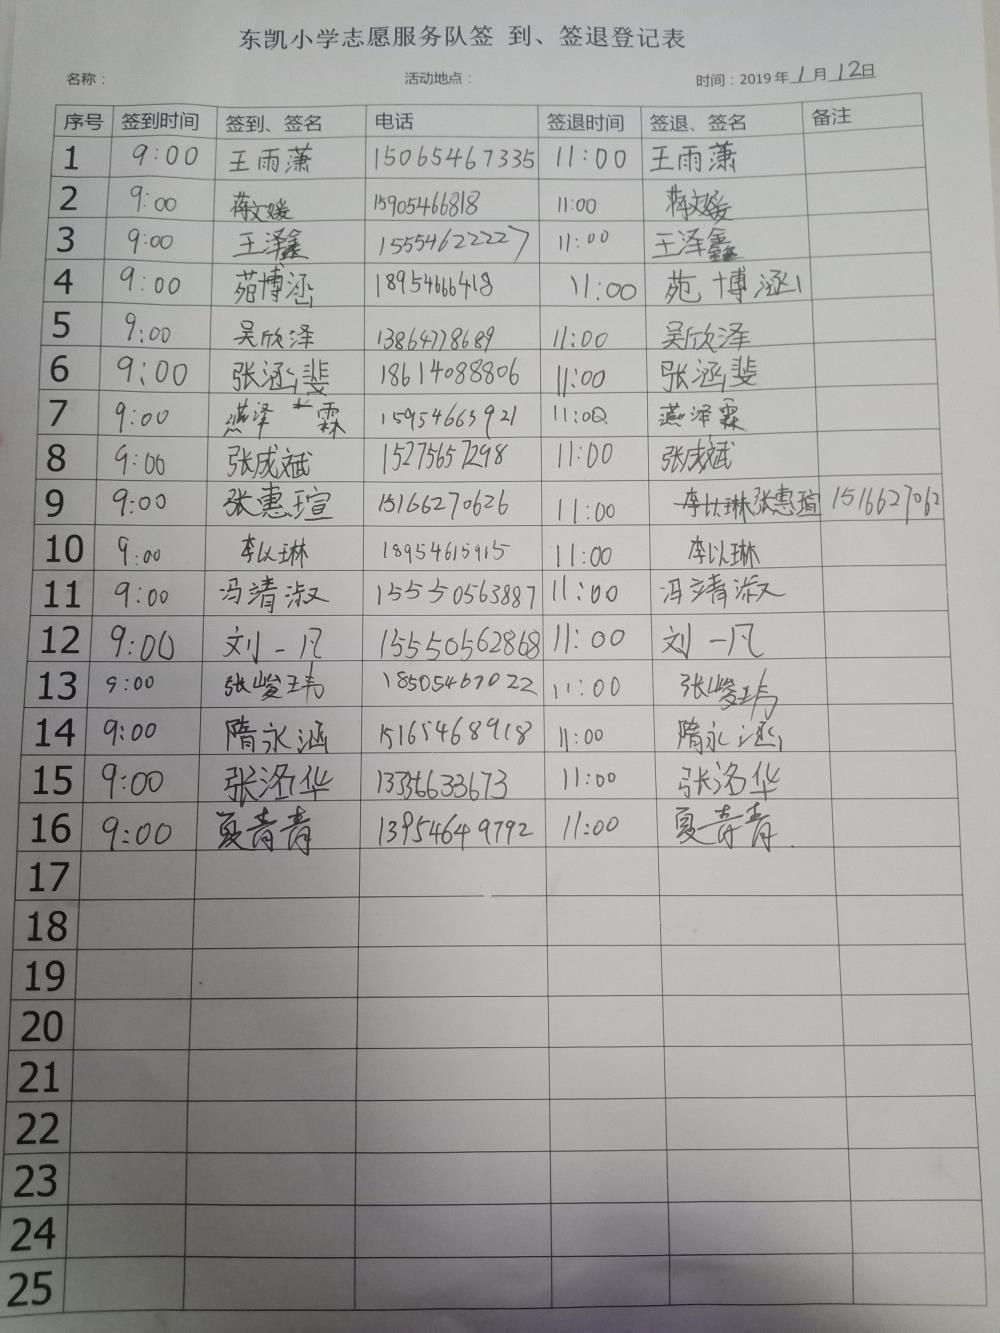 东凯小学志愿服务队签 到、签退登记表
名称： 活动地点： 时间：2019年1月12日
序号 签到时间 签到、签名 电话 签退时间 签退、签名 备注
1 9:00 王雨潇 15065467335 11:00 王雨潇
2 9:00 蒋文媛 15905466818 11:00 蒋文媛
3 9:00 王泽鑫 15554622227 11:00 王泽鑫
4 9:00 苑博涵 18954666418 11:00 苑博涵
5 9:00 吴欣泽 13864778689 11:00 吴欣泽
6 9:00 张涵斐 18614088806 11:00 张涵斐
7 9:00 燕泽霖 15954665921 11:00 燕泽霖
8 9:00 张成斌 15275657298 11:00 张成斌
9 9:00 张惠瑄 15166270626 11:00 李以琳张惠瑄 1516627062
10 9:00 李以琳 18954615915 11:00 李以琳
11 9:00 冯靖淑 15550563887 11:00 冯靖淑
12 9:00 刘一凡 15550562868 11:00 刘一凡
13 9:00 张峻玮 18505467022 11:00 张峻玮
14 9:00 隋永涵 15165468918 11:00 隋永涵
15 9:00 张洺华 13356633673 11:00 张洺华
16 9:00 夏青青 13954649792 11:00 夏青青
17
18
19
20
21
22
23
24
25